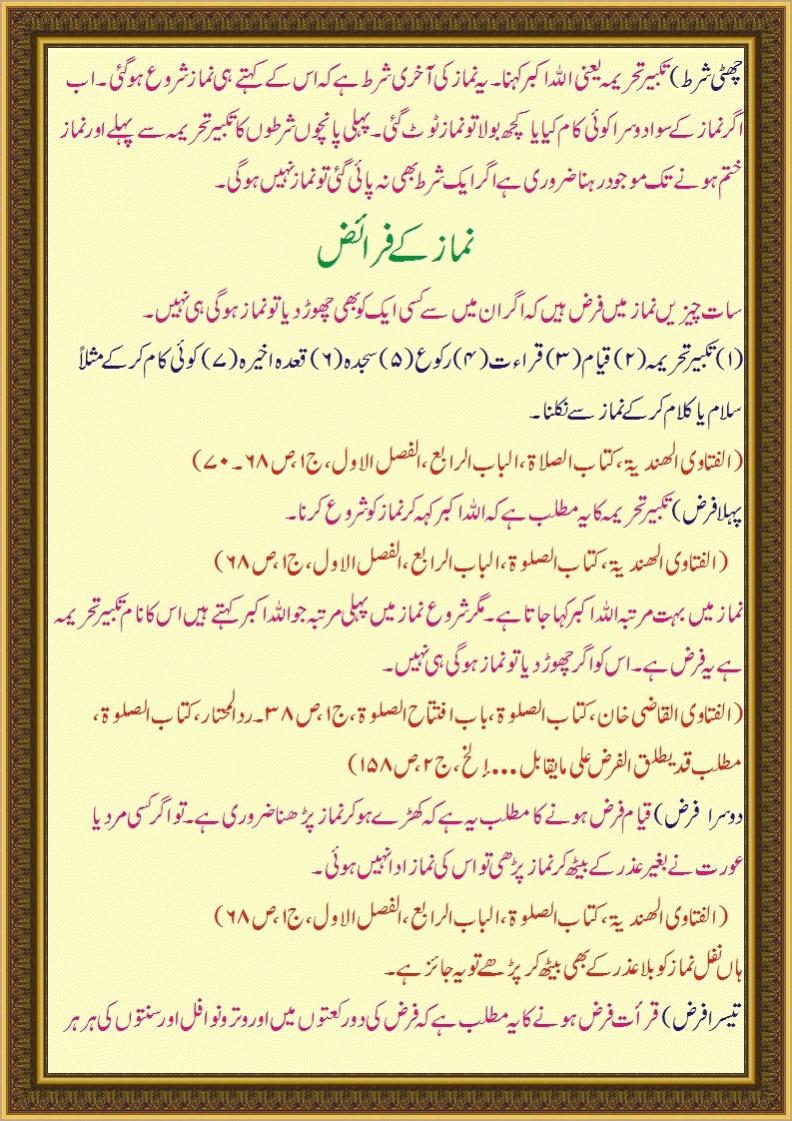 چھٹی شرط) تکبیر تحریمہ یعنی اللہ اکبر کہنا۔ یہ نماز کی آخری شرط ہے کہ اس کے کہتے ہی نماز شروع ہوگئی۔ اب
اگر نماز کے سوا دوسرا کوئی کام کیا یا کچھ بولا تو نماز ٹوٹ گئی۔ پہلی پانچوں شرطوں کا تکبیر تحریمہ سے پہلے اور نماز
ختم ہونے تک موجود رہنا ضروری ہے اگر ایک شرط بھی نہ پائی گئی تو نماز نہیں ہوگی۔
نماز کے فرائض
سات چیزیں نماز میں فرض ہیں کہ اگر ان میں سے کسی ایک کو بھی چھوڑ دیا تو نماز ہوگی ہی نہیں۔
(۱) تکبیر تحریمہ (۲) قیام (۳) قراءت (۴) رکوع (۵) سجدہ (۶) قعدہ اخیرہ (۷) کوئی کام کرکے مثلاً
سلام یا کلام کرکے نماز سے نکلنا۔
(الفتاوی الھندیۃ، کتاب الصلاۃ، الباب الرابع، الفصل الاول، ج۱، ص۶۸۔۷۰)
پہلا فرض) تکبیر تحریمہ کا یہ مطلب ہے کہ اللہ اکبر کہہ کر نماز کو شروع کرنا۔
(الفتاوی الھندیۃ، کتاب الصلوۃ، الباب الرابع، الفصل الاول، ج۱، ص۶۸)
نماز میں بہت مرتبہ اللہ اکبر کہا جاتا ہے۔ مگر شروع نماز میں پہلی مرتبہ جو اللہ اکبر کہتے ہیں اس کا نام تکبیر تحریمہ
ہے یہ فرض ہے۔ اس کو اگر چھوڑ دیا تو نماز ہوگی ہی نہیں۔
(الفتاوی القاضی خان، کتاب الصلوۃ، باب افتتاح الصلوۃ، ج۱، ص۳۸۔ردالمحتار، کتاب الصلوۃ،
مطلب قد یطلق الفرض علی ما یقابل...إلخ، ج۲، ص۱۵۸)
دوسرا فرض) قیام فرض ہونے کا مطلب یہ ہے کہ کھڑے ہو کر نماز پڑھنا ضروری ہے۔ تو اگر کسی مرد یا
عورت نے بغیر عذر کے بیٹھ کر نماز پڑھی تو اس کی نماز ادا نہیں ہوئی۔
(الفتاوی الھندیۃ، کتاب الصلوۃ، الباب الرابع، الفصل الاول، ج۱، ص۶۸)
ہاں نفل نماز کو بلا عذر کے بھی بیٹھ کر پڑھے تو یہ جائز ہے۔
تیسرا فرض) قرأت فرض ہونے کا یہ مطلب ہے کہ فرض کی دو رکعتوں میں اور وتر و نوافل اور سنتوں کی ہر ہر